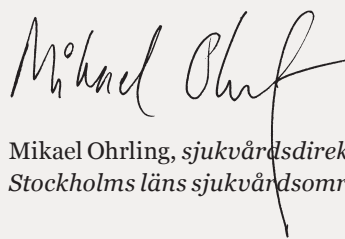 Mikael Ohrling
Mikael Ohrling, sjukvårdsdirek
Stockholms läns sjukvårdsomr